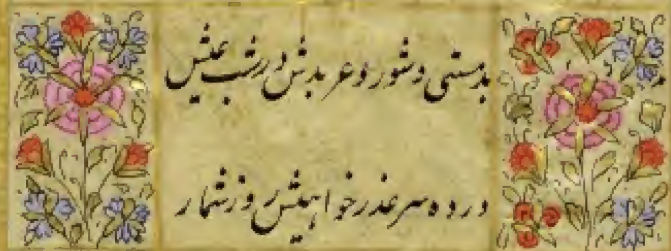 بدمستی و شور و عربدش در شب عیش
درد سر عذر خواهیش روز شمار